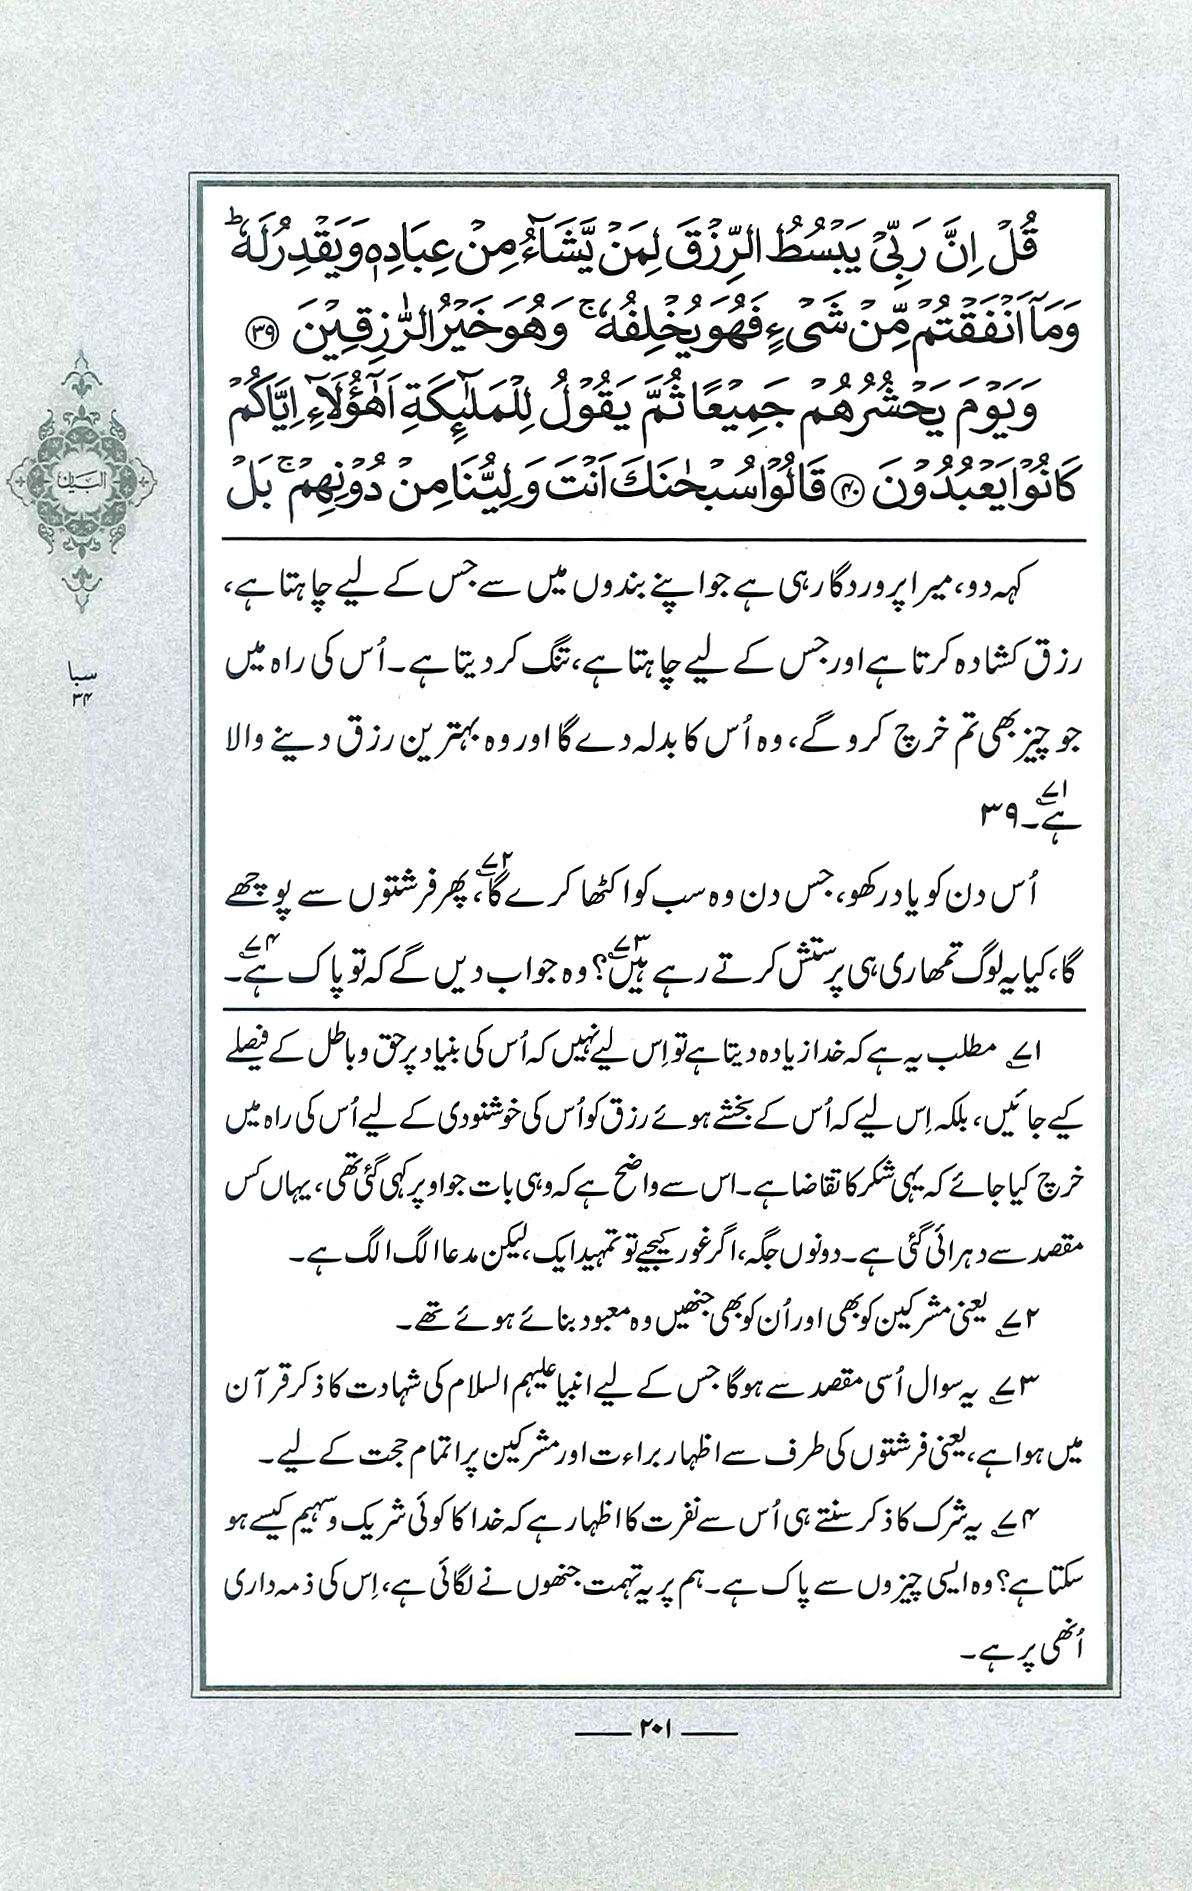 قُلْ اِنَّ رَبِّیْ یَبْسُطُ الرِّزْقَ لِمَنْ یَّشَآءُ مِنْ عِبَادِهٖ وَیَقْدِرُ لَهٗ ؕ
وَمَاۤ اَنْفَقْتُمْ مِّنْ شَیْءٍ فَهُوَ یُخْلِفُهٗ ۚ وَهُوَ خَیْرُ الرّٰزِقِیْنَ ﴿۳۹﴾
وَیَوْمَ یَحْشُرُهُمْ جَمِیْعًا ثُمَّ یَقُوْلُ لِلْمَلٰٓئِكَةِ اَهٰۤؤُلَآءِ اِیَّاكُمْ
كَانُوْا یَعْبُدُوْنَ ﴿۴۰﴾ قَالُوْا سُبْحٰنَكَ اَنْتَ وَلِیُّنَا مِنْ دُوْنِهِمْ ۚ بَلْ
البیان
سبا
۳۴
کہہ دو، میرا پروردگار ہی ہے جو اپنے بندوں میں سے جس کے لیے چاہتا ہے،
رزق کشادہ کرتا ہے اور جس کے لیے چاہتا ہے، تنگ کر دیتا ہے۔ اُس کی راہ میں
جو چیز بھی تم خرچ کرو گے، وہ اُس کا بدلہ دے گا اور وہ بہترین رزق دینے والا
ہے۔۷۱ ۳۹
اُس دن کو یاد رکھو، جس دن وہ سب کو اکٹھا کرے گا۷۲، پھر فرشتوں سے پوچھے
گا، کیا یہ لوگ تمھاری ہی پرستش کرتے رہے ہیں۷۳؟ وہ جواب دیں گے کہ تو پاک ہے۷۴۔
۷۱ مطلب یہ ہے کہ خدا زیادہ دیتا ہے تو اِس لیے نہیں کہ اُس کی بنیاد پر حق و باطل کے فیصلے
کیے جائیں، بلکہ اِس لیے کہ اُس کے بخشے ہوئے رزق کو اُس کی خوشنودی کے لیے اُس کی راہ میں
خرچ کیا جائے کہ یہی شکر کا تقاضا ہے۔ اس سے واضح ہے کہ وہی بات جو اوپر کہی گئی تھی، یہاں کس
مقصد سے دہرائی گئی ہے۔ دونوں جگہ، اگر غور کیجیے تو تمہید ایک، لیکن مدعا الگ الگ ہے۔
۷۲ یعنی مشرکین کو بھی اور اُن کو بھی جنھیں وہ معبود بنائے ہوئے تھے۔
۷۳ یہ سوال اُسی مقصد سے ہوگا جس کے لیے انبیا علیہم السلام کی شہادت کا ذکر قرآن
میں ہوا ہے، یعنی فرشتوں کی طرف سے اظہار براءت اور مشرکین پر اتمام حجت کے لیے۔
۷۴ یہ شرک کا ذکر سنتے ہی اُس سے نفرت کا اظہار ہے کہ خدا کا کوئی شریک و سہیم کیسے ہو
سکتا ہے؟ وہ ایسی چیزوں سے پاک ہے۔ ہم پر یہ تہمت جنھوں نے لگائی ہے، اِس کی ذمہ داری
اُنھی پر ہے۔
۲۰۱